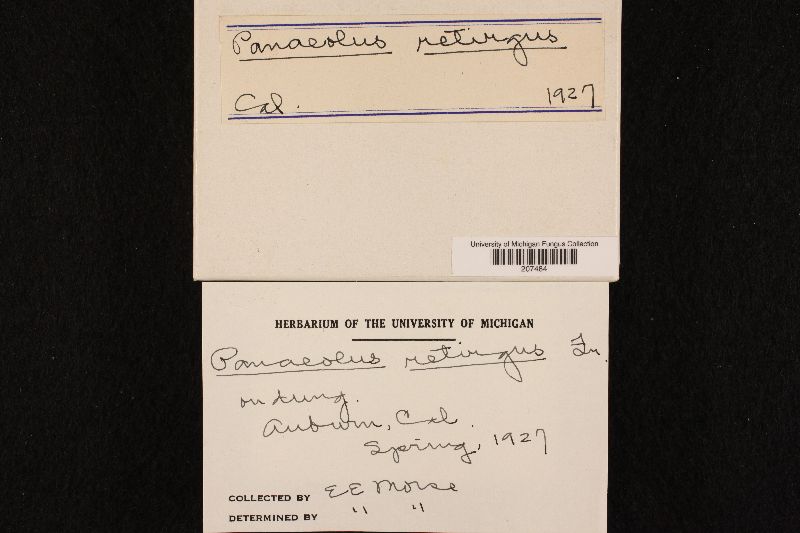 Panaeolus retirgus
Cal. 1927
University of Michigan Fungus Collection
207484
HERBARIUM OF THE UNIVERSITY OF MICHIGAN
Panaeolus retirgus Fr.
on dung.
Auburn, Cal.
Spring, 1927
COLLECTED BY E E Morse
DETERMINED BY " "